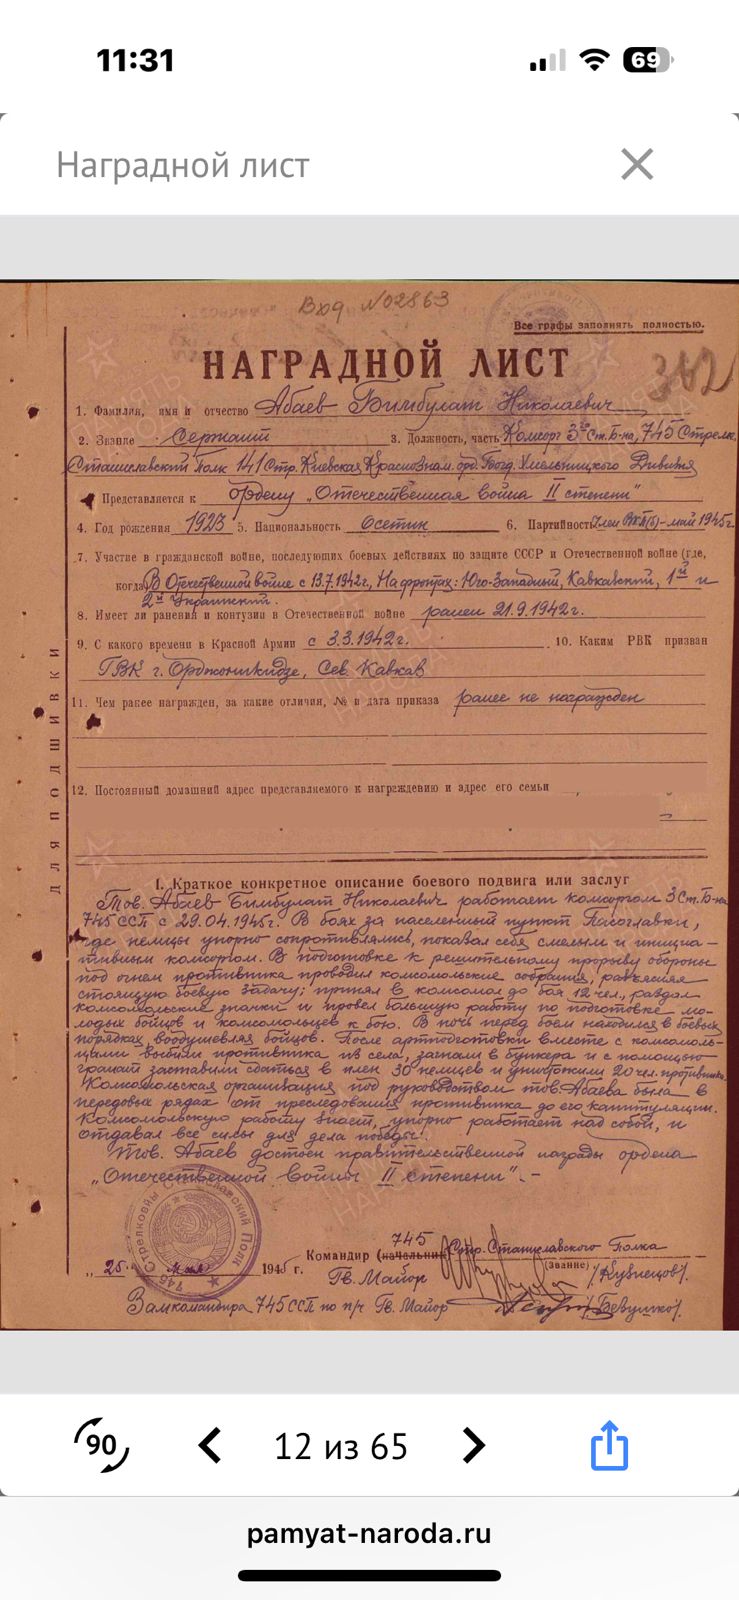 11:31
69
Наградной лист
Вход №02863
Все графы заполнять полностью.
НАГРАДНОЙ ЛИСТ
382
1. Фамилия, имя и отчество Абаев Бимбулат Николаевич
2. Звание Сержант 3. Должность, часть Комсорг 3го Ст. Б-на, 745 Стрелк.
Станиславский Полк 141 Стр. Киевская Краснознам. орд. Богд. Хмельницкого Дивизия
Представляется к ордену „Отечественная война II степени"
4. Год рождения 1923 5. Национальность Осетин 6. Партийность Член ВКП(б) - май 1945г.
7. Участие в гражданской войне, последующих боевых действиях по защите СССР и Отечественной войне (где,
когда) В Отечественной войне с 13.7.1942г., На фронтах: Юго-Западный, Кавкавский, 1й и
2й Украинский.
8. Имеет ли ранения и контузии в Отечественной войне ранен 21.9.1942г.
9. С какого времени в Красной Армии с 3.3.1942г. 10. Каким РВК призван
ГВК г. Орджоникидзе, Сев. Кавкав
11. Чем ранее награжден, за какие отличия, № и дата приказа ранее не награжден
12. Постоянный домашний адрес представляемого к награждению и адрес его семьи
ДЛЯ ПОДШИВКИ
I. Краткое конкретное описание боевого подвига или заслуг
Тов. Абаев Бимбулат Николаевич работает комсоргом 3 Ст. Б-на
745 ССП с 29.04.1945г. В боях за населенный пункт Пасоглавки,
где немцы упорно сопротивлялись, показал себя смелым и инициа-
тивным комсоргом. В подготовке к решительному прорыву обороны
под огнем противника проводил комсомольские собрания, разъясняя
стоящую боевую задачу; принял в комсомол до боя 12 чел., раздал
комсомольские значки и провел большую работу по подготовке мо-
лодых бойцов и комсомольцев к бою. В ночь перед боем находился в боевых
порядках, воодушевляя бойцов. После артподготовки вместе с комсомоль-
цами выбили противника из села, загнали в бункера и с помощью
гранат заставили сдаться в плен 30 немцев и уничтожили 20 чел. противника.
Комсомольская организация под руководством тов. Абаева была в
передовых рядах от преследования противника до его капитуляции.
Комсомольскую работу знает, упорно работает над собой, и
отдавал все силы для дела победы.
Тов. Абаев достоен правительственной награды ордена
„Отечественной войны II степени". -
745 Стрелковый Станиславский Полк
Командир (начальник) 745 Стр. Станиславского Полка
„25" мая 1945 г.
(звание)
Гв. Майор /Кузнецов/.
Замкомандира 745 ССП по п/ч Гв. Майор /Бевушко/.
ПАМЯТЬ НАРОДА
90
12 из 65
pamyat-naroda.ru